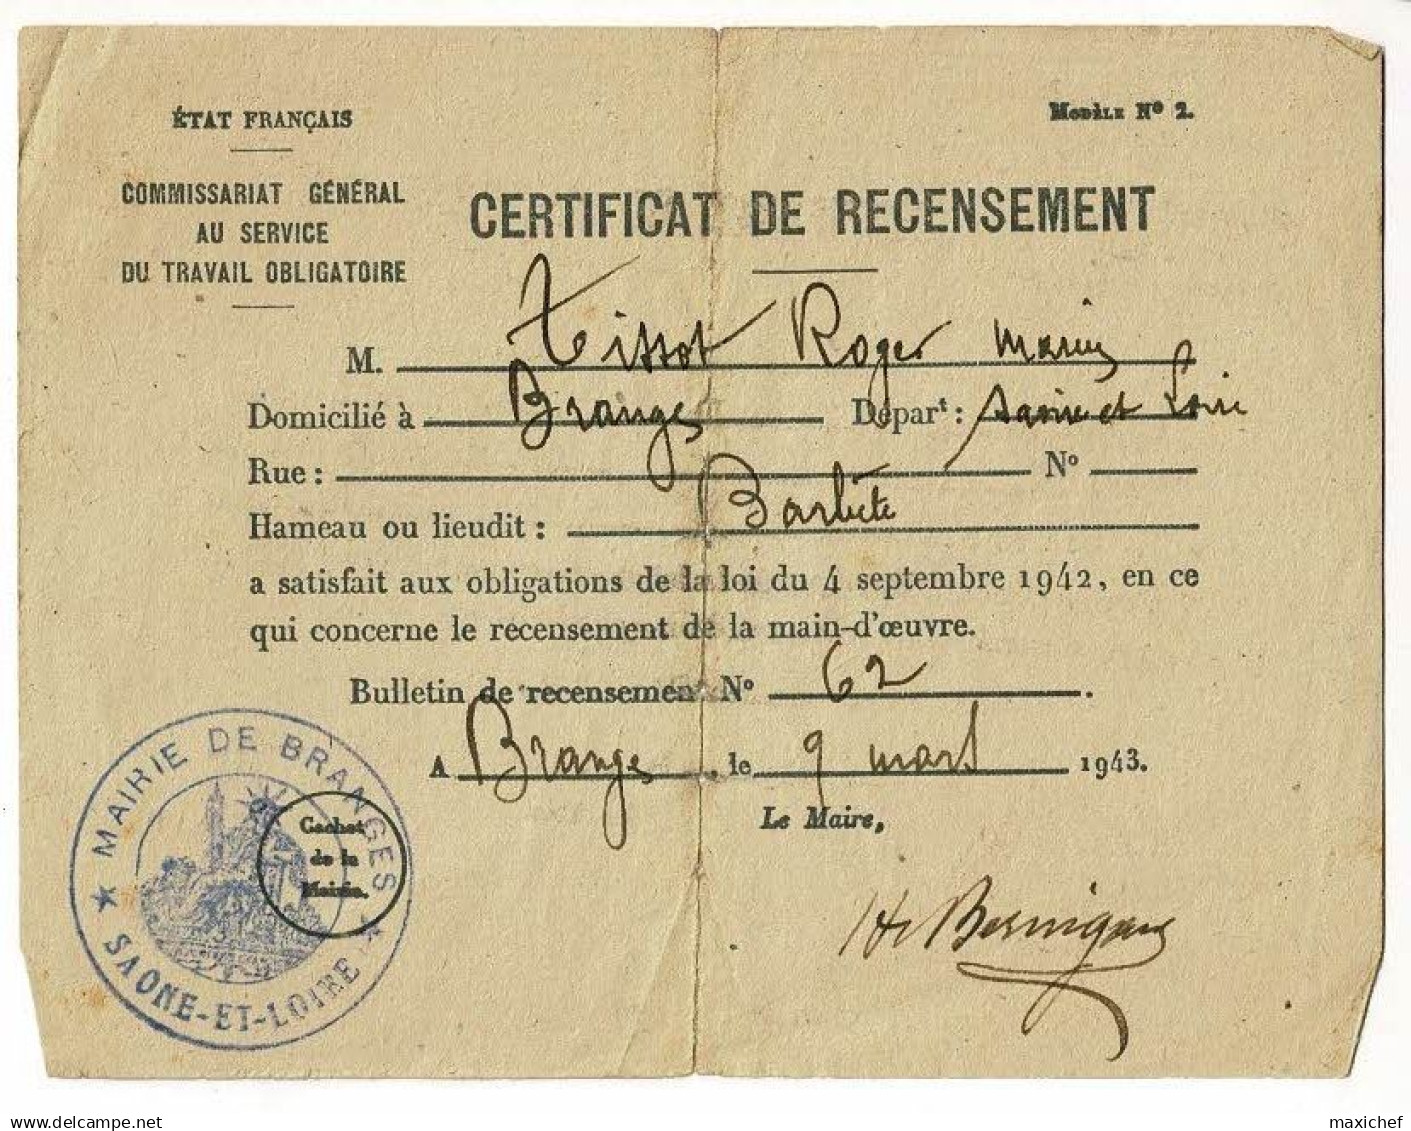 ÉTAT FRANÇAIS
Modèle Nº 2.
COMMISSARIAT GÉNÉRAL
AU SERVICE
DU TRAVAIL OBLIGATOIRE
CERTIFICAT DE RECENSEMENT
M. Tissot Roger Marius
Domicilié à Branges Départ : Saône et Loire
Rue : Nº
Hameau ou lieudit : Barbète
a satisfait aux obligations de la loi du 4 septembre 1942, en ce
qui concerne le recensement de la main-d'œuvre.
Bulletin de recensement Nº 62.
A Branges, le 9 mars 1943.
Le Maire,
MAIRIE DE BRANGES
SAONE-ET-LOIRE
Cachet
de la
Mairie.
www.delcampe.net
maxichef